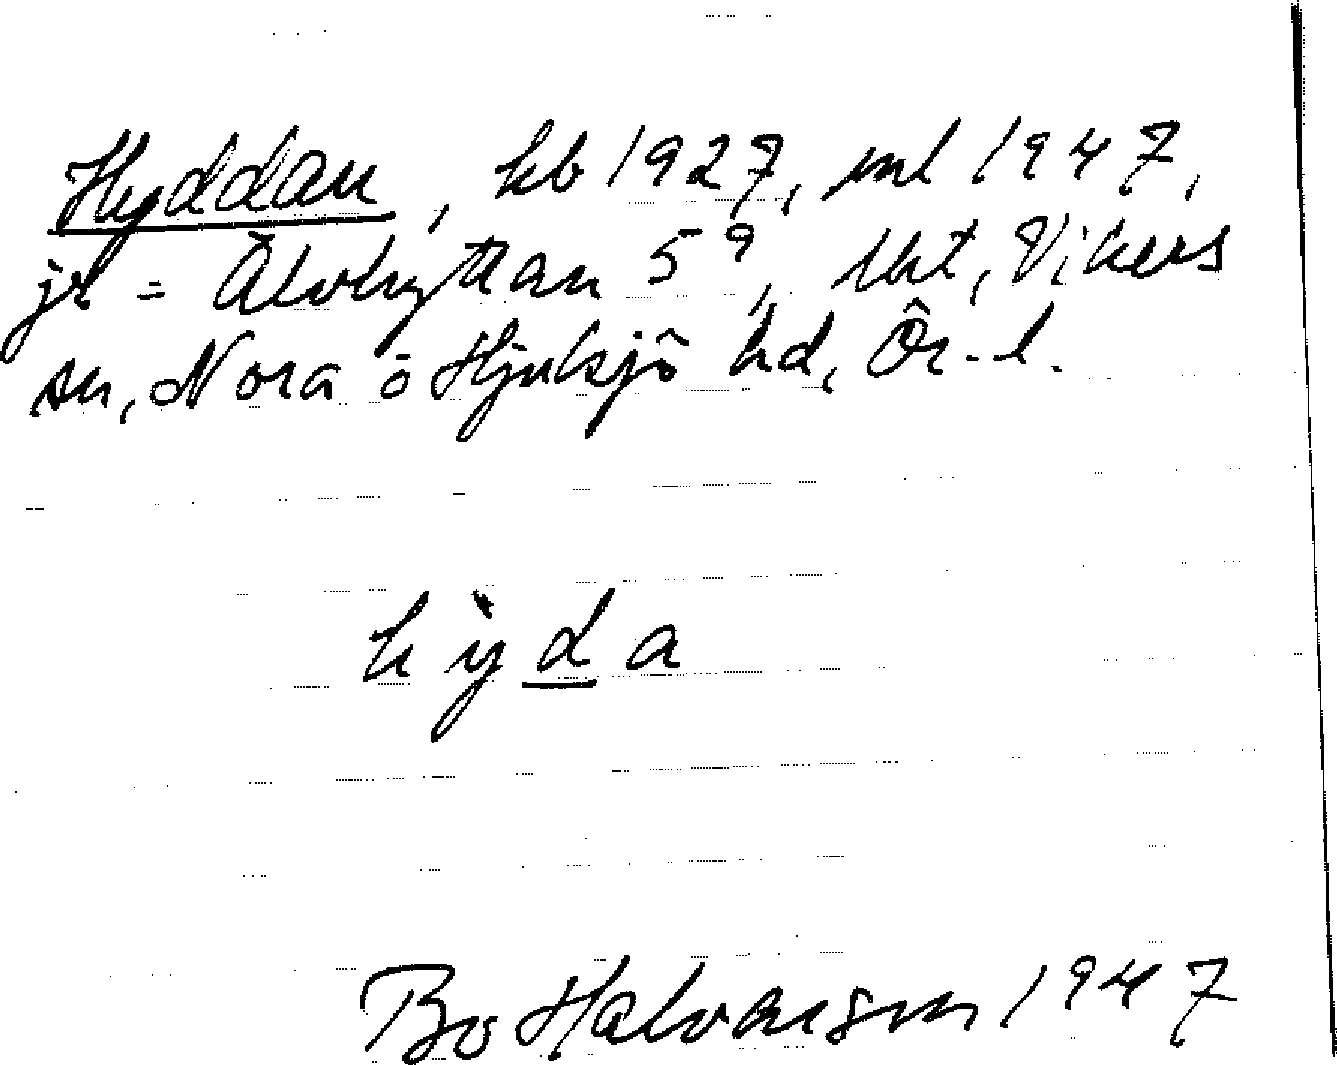 Hyddan, kb 1927, ml 1947,
jr = Älvhyttan 5⁹, uht, Vikers
sn, Nora o Hjulsjö hd, Ör-l.
hỳda
Bo Halvarsson 1947